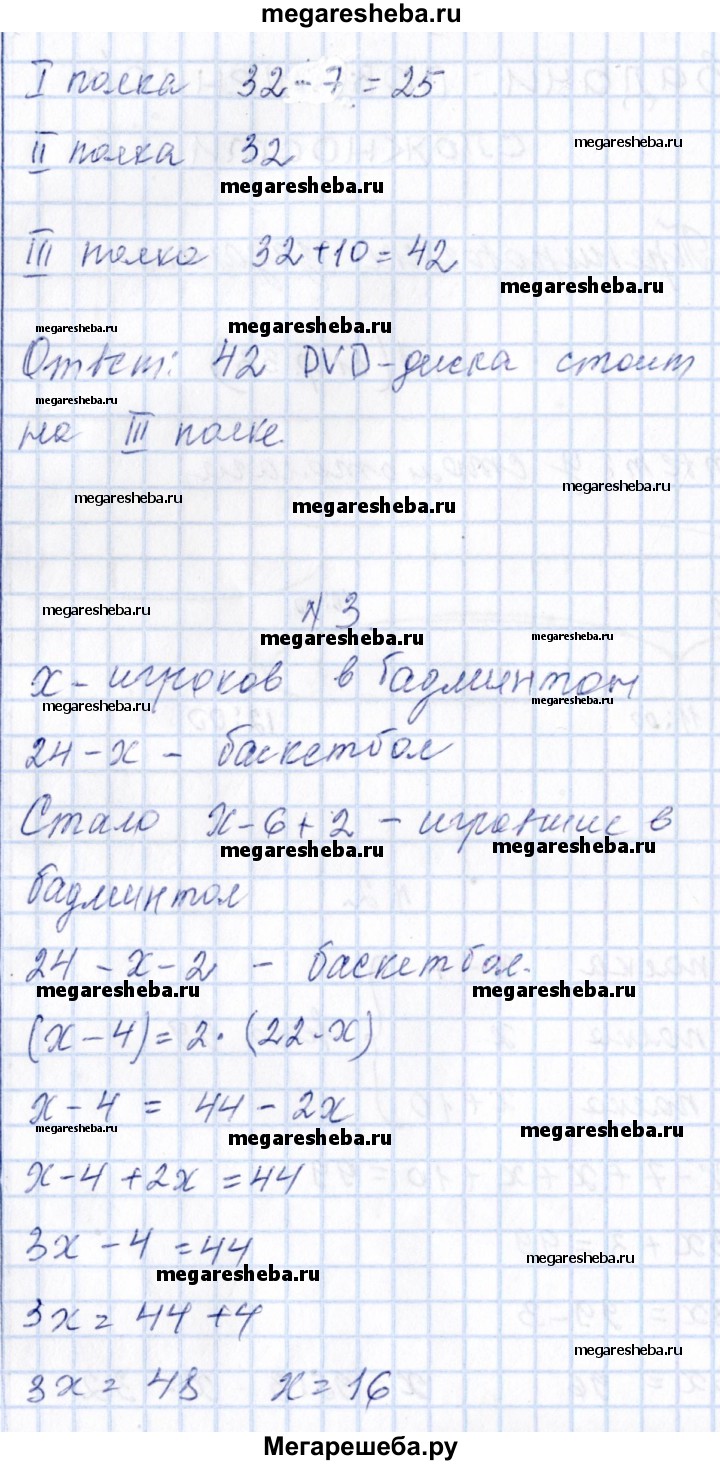 megaresheba.ru
I полка 32 - 7 = 25
megaresheba.ru
II полка 32
megaresheba.ru
III полка 32 + 10 = 42
megaresheba.ru
megaresheba.ru megaresheba.ru
Ответ: 42 DVD-диска стоит
megaresheba.ru
на III полке.
megaresheba.ru megaresheba.ru
megaresheba.ru
№ 3
megaresheba.ru megaresheba.ru
x - игроков в бадминтон
megaresheba.ru megaresheba.ru
24 - x - баскетбол
Стало x - 6 + 2 - игравшие в
megaresheba.ru megaresheba.ru
бадминтон
24 - x - 2 - баскетбол.
megaresheba.ru megaresheba.ru
(x - 4) = 2 · (22 - x)
x - 4 = 44 - 2x
megaresheba.ru megaresheba.ru megaresheba.ru
x - 4 + 2x = 44
3x - 4 = 44
megaresheba.ru megaresheba.ru
3x = 44 + 4
megaresheba.ru
3x = 48 x = 16
Мегарешеба.ру